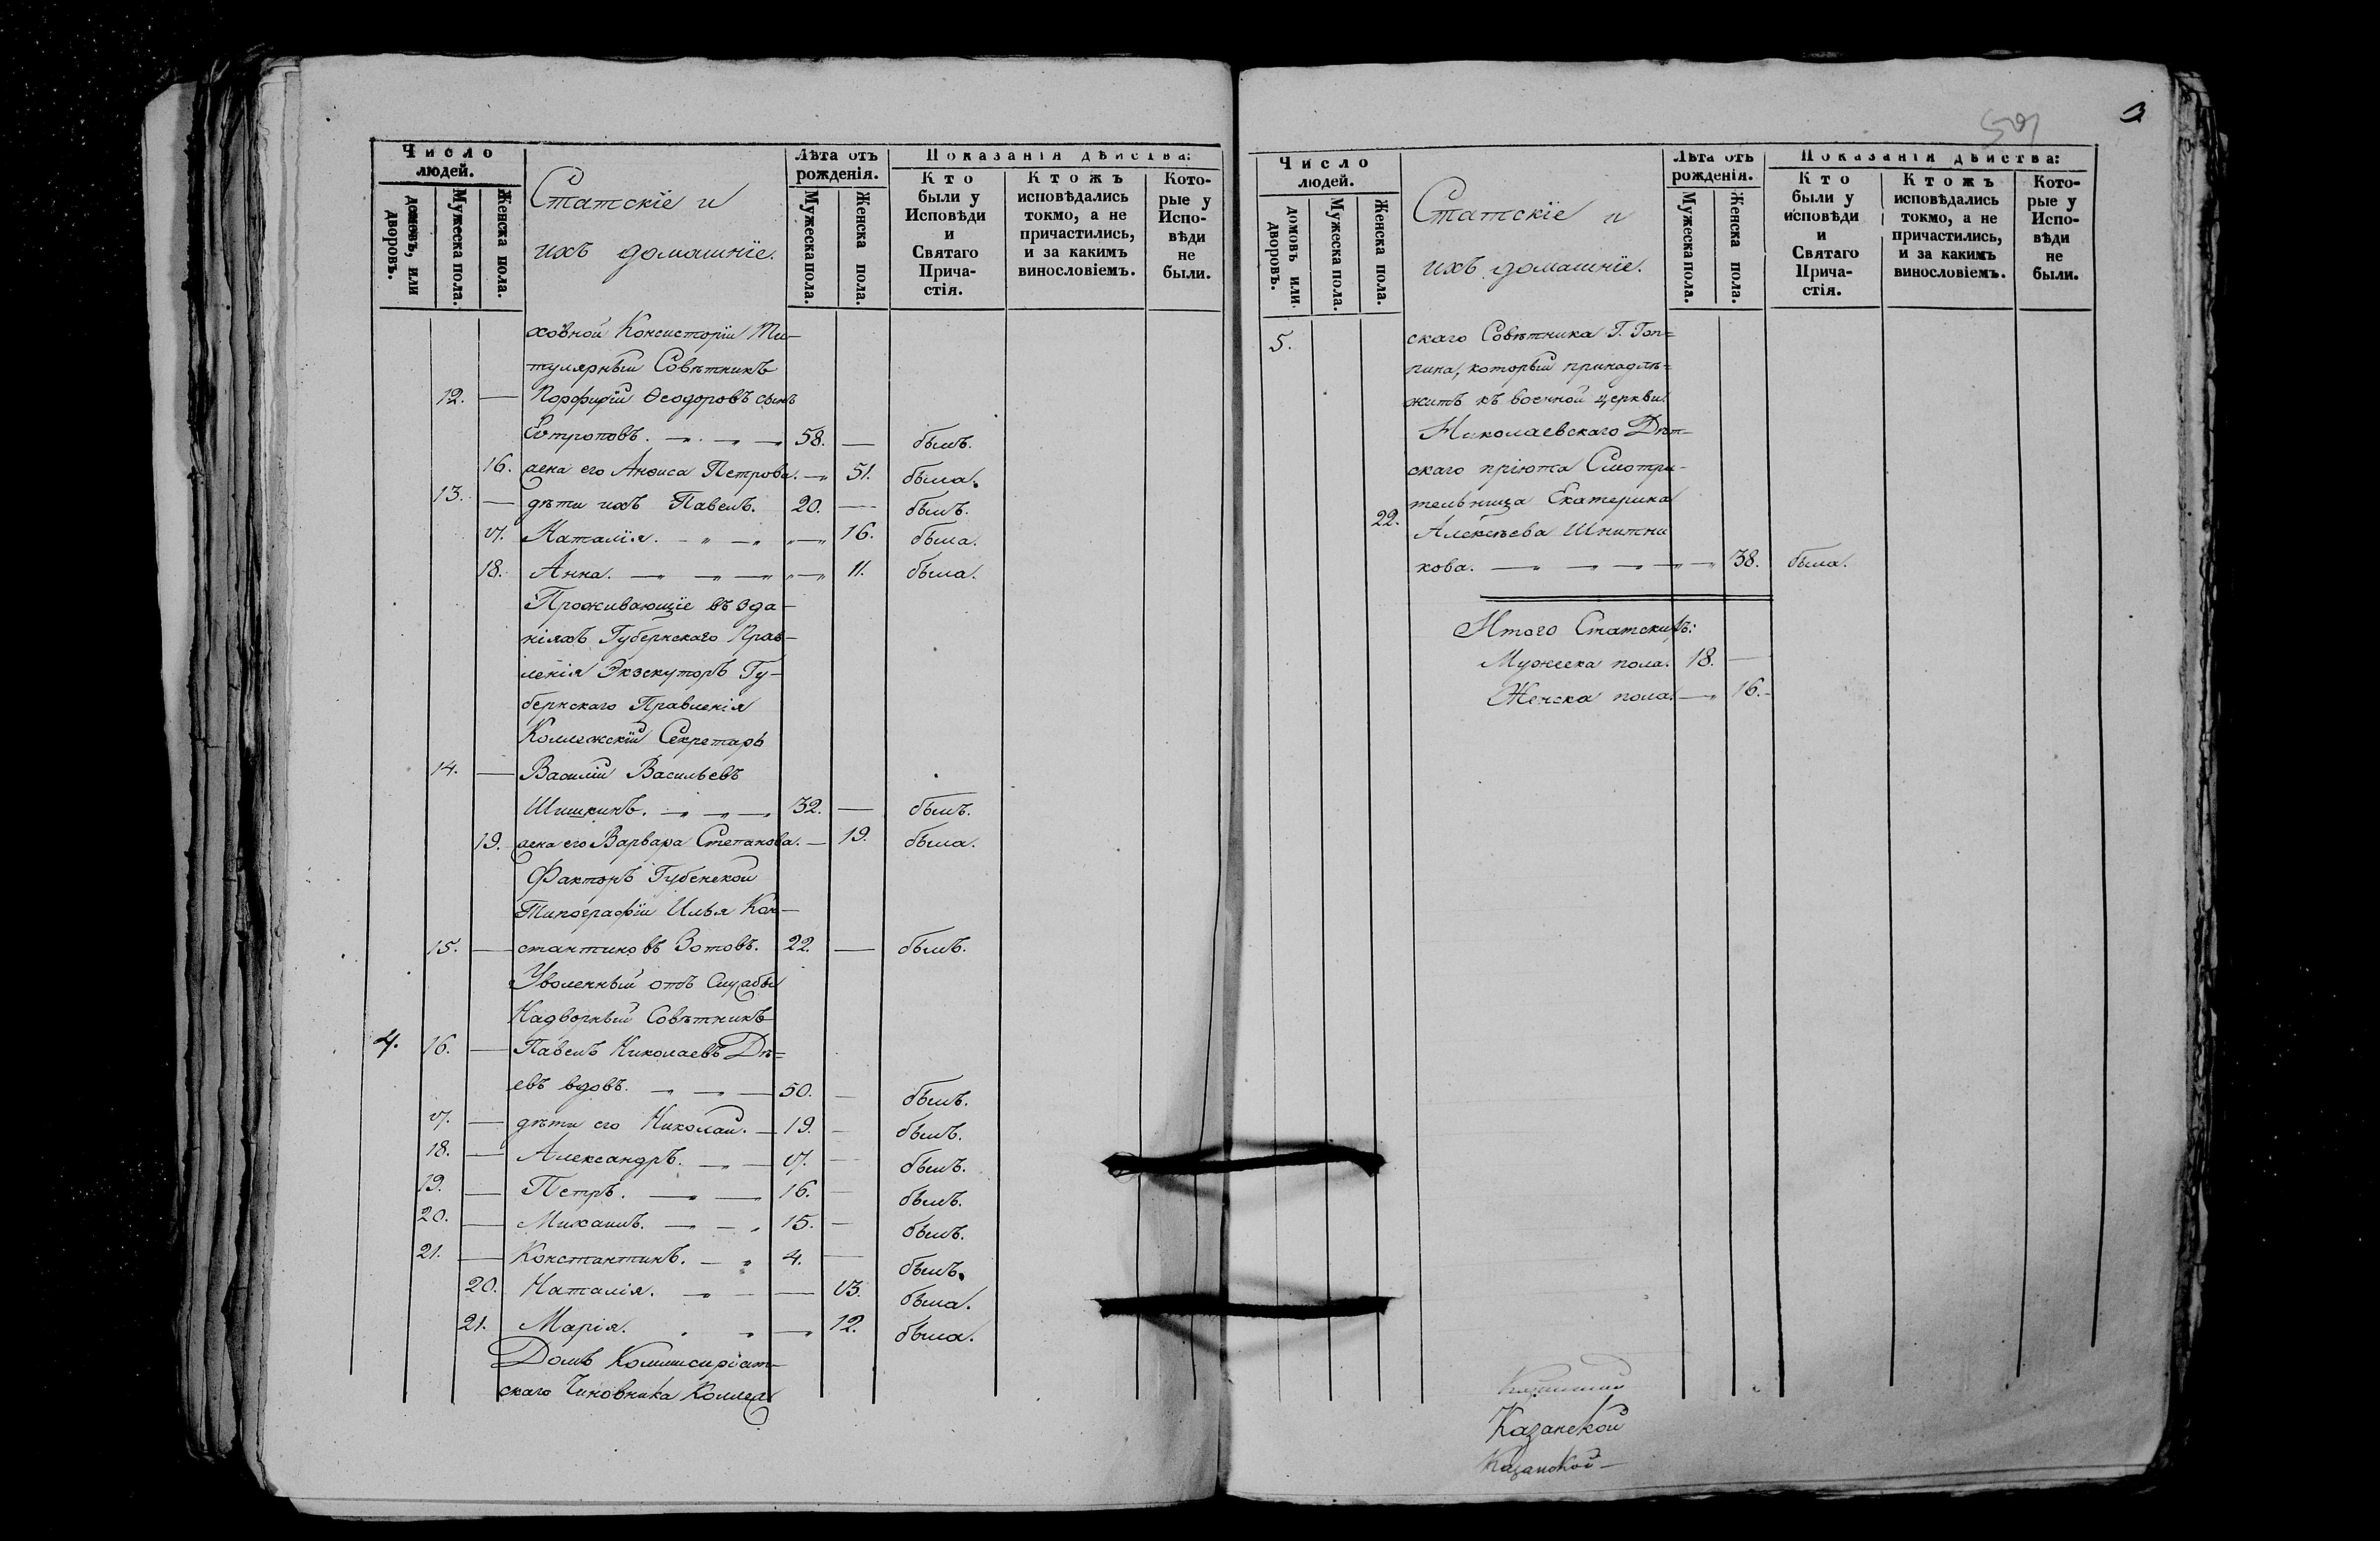 Число людей.
домовъ, или дворовъ.
Мужеска пола.
Женска пола.
Статскіе и
ихъ домашніе.
Лѣта отъ рожденія.
Мужеска пола.
Женска пола.
Показанія дѣйства:
Кто были у Исповѣди и Святаго Причастія.
Ктожъ исповѣдались токмо, а не причастились, и за какимъ винословіемъ.
Которые у Исповѣди не были.
ховной Консисторіи Ти-
тулярный Совѣтникъ
12. — Порфирій Ѳеодоровъ сынъ
Евтроповъ. — „ — „ — 58. — былъ.
16. жена его Анѳиса Петрова. — „ 51. была.
13. — дѣти ихъ Павелъ. 20. — былъ.
17. Наталія. — „ — „ „ — „ 16. была.
18. Анна. — „ — „ — „ „ — „ 11. была.
Проживающіе въ зда-
ніяхъ Губернскаго Прав-
ленія Экзекуторъ Гу-
бернскаго Правленія
Коллежскій Секретарь
14. — Василій Васильевъ
Шишкинъ. — „ — „ — „ 32. — былъ.
19. жена его Варвара Степанова. — 19. была.
Факторъ Губенской
Типографіи Илья Кон-
15. — стантиновъ Зотовъ. 22. — былъ.
Уволенный отъ Службы
Надворный Совѣтникъ
4. 16. — Павелъ Николаевъ Дѣ=
евъ вдовъ. — „ — „ — 50. — былъ.
17. — дѣти его Николай. — 19. — былъ.
18. — Александръ. — „ — 17. — былъ.
19. — Петръ. — „ — „ 16. — былъ.
20. — Михаилъ. — „ — „ 15. — былъ.
21. — Константинъ. — „ 4. — былъ.
20. Наталія. — „ — — 13. была.
21. Марія. „ „ — „ 12. была.
Домъ Коммисаріат-
скаго Чиновника Коллеж
591
3
Число людей.
домовъ или дворовъ.
Мужеска пола.
Женска пола.
Статскіе и
ихъ домашніе.
Лѣта отъ рожденія.
Мужеска пола.
Женска пола.
Показанія дѣйства:
Кто были у исповѣди и Святаго Причастія.
Ктожъ исповѣдались токмо, а не причастились, и за какимъ винословіемъ.
Которые у Исповѣди не были.
5. скаго Совѣтника Г. Гоп=
пина, который принадлѣ=
житъ къ военной церкви.
Николаевскаго Дѣт-
скаго пріюта Смотри-
тельница Екатерина
22. Алексѣева Шнитни
кова. — „ — „ — „ — „ — „ 38. была.
Итого Статскихъ:
Мужеска пола. 18. —
Женска пола. — „ 16. -
Казанской
Казанской —